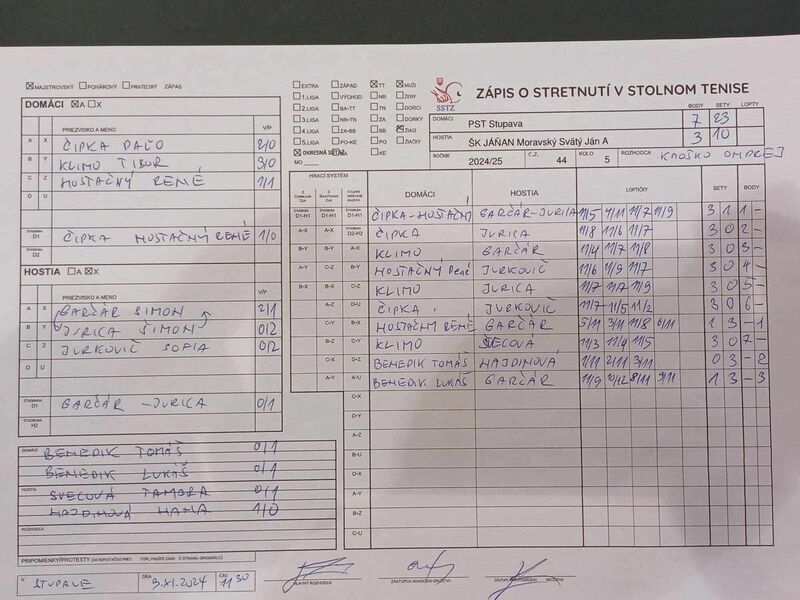 MAJSTROVSKÝ POHÁROVÝ PRIATEĽSKÝ ZÁPAS
DOMÁCI A X
PRIEZVISKO A MENO V/P
A X ČIPKA PAĽO 2/0
B Y KLIMO TIBOR 3/0
C Z HOSTAČNÝ RENÉ 1/1
D U
ŠTVORHRA D1 ČIPKA HOSTAČNÝ RENÉ 1/0
ŠTVORHRA D2
HOSTIA A X
PRIEZVISKO A MENO V/P
A X GARČÁR SIMON 2/1
B Y JURICA ŠIMON 0/2
C Z JURKOVIČ SOFIA 0/2
D U
ŠTVORHRA D1 GARČÁR - JURICA 0/1
ŠTVORHRA H2
DOMÁCI BENEDIK TOMÁŠ 0/1
BENEDIK LUKÁŠ 0/1
HOSTIA SVECOVÁ TAMARA 0/1
HAJDINOVÁ HANA 1/0
ROZHODCA
PRIPOMIENKY/PROTESTY
V STUPAVE DŇA 3.XI.2024 ČAS 11 30
EXTRA ZÁPAD TT MUŽI
1.LIGA VÝCHOD NR ŽENY
2.LIGA BA-TT TN DORCI
3.LIGA NR-TN ZA DORKY
4.LIGA ZA-BB BB ŽIACI
5.LIGA PO-KE PO ŽIAČKY
OKRESNÁ SÚŤAŽ KE
MO
SSTZ
ZÁPIS O STRETNUTÍ V STOLNOM TENISE
BODY SETY LOPTY
DOMÁCI PST Stupava 7 23
HOSTIA ŠK JÁŇAN Moravský Svätý Ján A 3 10
ROČNÍK 2024/25 Č.Z. 44 KOLO 5 ROZHODCA KROŠKO ONDREJ
HRACÍ SYSTÉM DOMÁCI HOSTIA LOPTIČKY SETY BODY
D1-H1 D1-H1 D1-H1 ČIPKA-HOSTAČNÍ GARČÁR-JURICA 11/5 4/11 11/7 11/9 3 1 1 -
A-X A-X D2-H2 ČIPKA JURICA 11/8 11/6 11/7 3 0 2 -
B-Y B-Y A-X KLIMO GARČÁR 11/4 11/7 11/8 3 0 3 -
A-Y C-Z B-Y HOSTAČNÝ René JURKOVIČ 11/6 11/9 11/7 3 0 4 -
B-X B-X C-Z KLIMO JURICA 11/7 11/7 11/9 3 0 5 -
A-Z D-U ČIPKA JURKOVIČ 11/7 11/5 11/2 3 0 6 -
C-Y B-X HOSTAČNÝ RENÉ GARČÁR 5/11 3/11 11/8 6/11 1 3 - 1
B-Z C-Y KLIMO SVECOVÁ 11/3 11/4 11/5 3 0 7 -
C-X D-Z BENEDIK TOMÁŠ HAJDINOVÁ 1/11 2/11 3/11 0 3 - 2
A-Y A-U BENEDIK LUKÁŠ GARČÁR 11/9 10/12 8/11 9/11 1 3 - 3
C-X
D-Y
A-Z
B-U
D-X
A-Y
B-Z
C-U
HLAVNÝ ROZHODCA ZÁSTUPCA DOMÁCEHO DRUŽSTVA